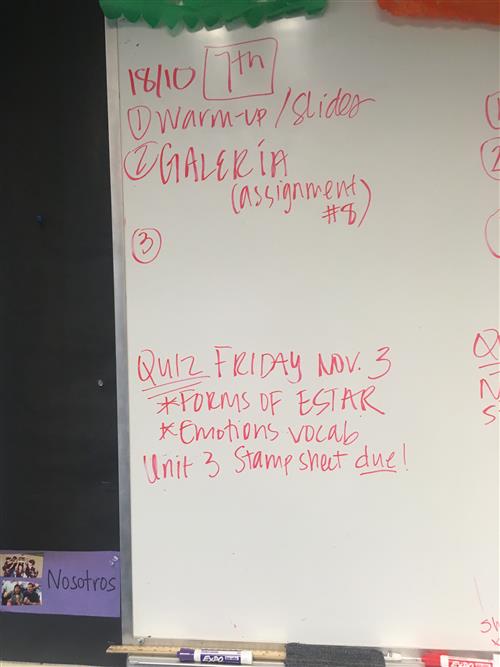 18/10 7th
① Warm-up/Slides
② GALERÍA
(assignment
#8)
③
QUIZ FRIDAY NOV. 3
*FORMS OF ESTAR
*Emotions vocab
Unit 3 Stamp sheet due!
Nosotros
EXPO
EXPO